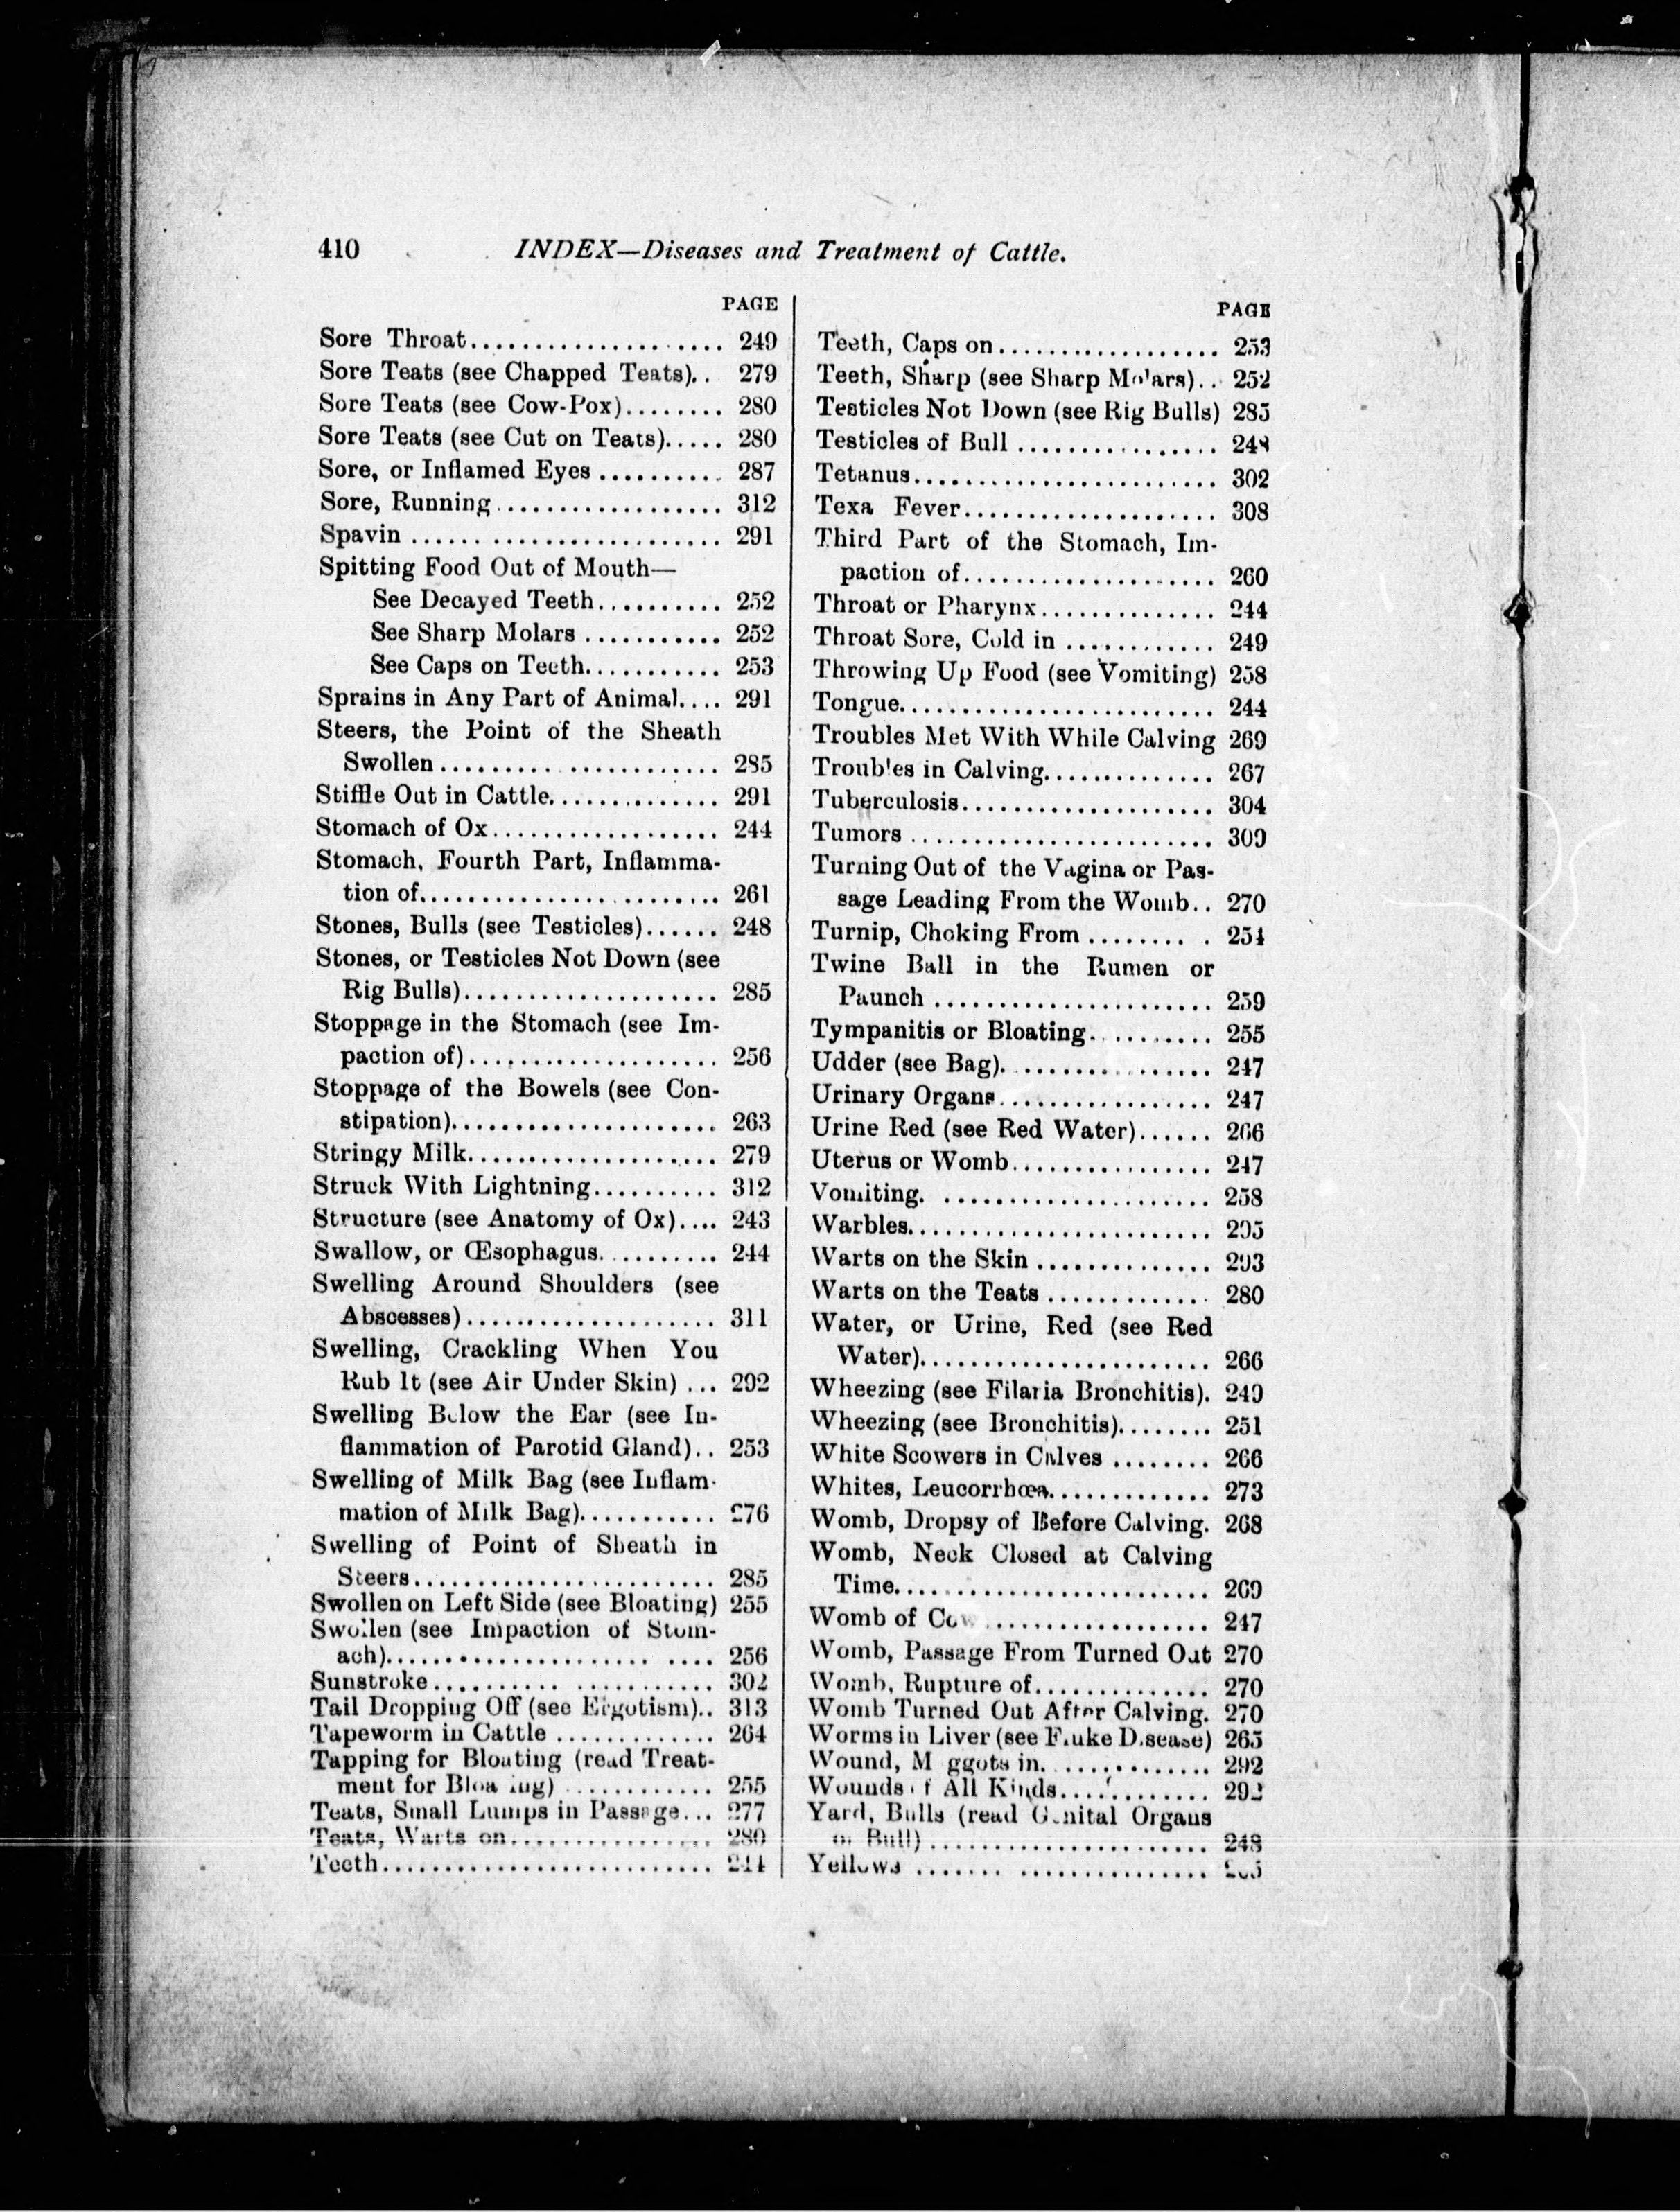 410 INDEX—Diseases and Treatment of Cattle.
PAGE
Sore Throat.................... 249
Sore Teats (see Chapped Teats).. 279
Sore Teats (see Cow-Pox)........ 280
Sore Teats (see Cut on Teats)..... 280
Sore, or Inflamed Eyes .......... 287
Sore, Running.................. 312
Spavin ........................ 291
Spitting Food Out of Mouth—
See Decayed Teeth.......... 252
See Sharp Molars ........... 252
See Caps on Teeth........... 253
Sprains in Any Part of Animal.... 291
Steers, the Point of the Sheath
Swollen...................... 285
Stiffle Out in Cattle.............. 291
Stomach of Ox.................. 244
Stomach, Fourth Part, Inflamma-
tion of........................ 261
Stones, Bulls (see Testicles)...... 248
Stones, or Testicles Not Down (see
Rig Bulls).................... 285
Stoppage in the Stomach (see Im-
paction of).................... 256
Stoppage of the Bowels (see Con-
stipation)..................... 263
Stringy Milk.................... 279
Struck With Lightning.......... 312
Structure (see Anatomy of Ox).... 243
Swallow, or Œsophagus.......... 244
Swelling Around Shoulders (see
Abscesses).................... 311
Swelling, Crackling When You
Rub It (see Air Under Skin) ... 292
Swelling Below the Ear (see In-
flammation of Parotid Gland).. 253
Swelling of Milk Bag (see Inflam-
mation of Milk Bag)........... 276
Swelling of Point of Sheath in
Steers........................ 285
Swollen on Left Side (see Bloating) 255
Swollen (see Impaction of Stom-
ach).......................... 256
Sunstroke...................... 302
Tail Dropping Off (see Ergotism).. 313
Tapeworm in Cattle ............. 264
Tapping for Bloating (read Treat-
ment for Bloating) ............ 255
Teats, Small Lumps in Passage... 277
Teats, Warts on................ 280
Teeth.......................... 244
PAGE
Teeth, Caps on.................. 253
Teeth, Sharp (see Sharp Molars).. 252
Testicles Not Down (see Rig Bulls) 285
Testicles of Bull ................ 248
Tetanus........................ 302
Texa Fever.................... 308
Third Part of the Stomach, Im-
paction of.................... 260
Throat or Pharynx.............. 244
Throat Sore, Cold in ............ 249
Throwing Up Food (see Vomiting) 258
Tongue......................... 244
Troubles Met With While Calving 269
Troubles in Calving.............. 267
Tuberculosis.................... 304
Tumors ........................ 309
Turning Out of the Vagina or Pas-
sage Leading From the Womb.. 270
Turnip, Choking From ......... 254
Twine Ball in the Rumen or
Paunch ...................... 259
Tympanitis or Bloating.......... 255
Udder (see Bag)................. 247
Urinary Organs................. 247
Urine Red (see Red Water)...... 266
Uterus or Womb................ 247
Vomiting. ..................... 258
Warbles........................ 295
Warts on the Skin .............. 293
Warts on the Teats ............. 280
Water, or Urine, Red (see Red
Water)....................... 266
Wheezing (see Filaria Bronchitis). 249
Wheezing (see Bronchitis)........ 251
White Scowers in Calves ........ 266
Whites, Leucorrhœa............. 273
Womb, Dropsy of Before Calving. 268
Womb, Neck Closed at Calving
Time......................... 269
Womb of Cow .................. 247
Womb, Passage From Turned Out 270
Womb, Rupture of.............. 270
Womb Turned Out After Calving. 270
Worms in Liver (see Fluke Disease) 265
Wound, Maggots in.............. 292
Wounds of All Kinds............ 292
Yard, Bulls (read Genital Organs
of Bull)...................... 248
Yellows .......................